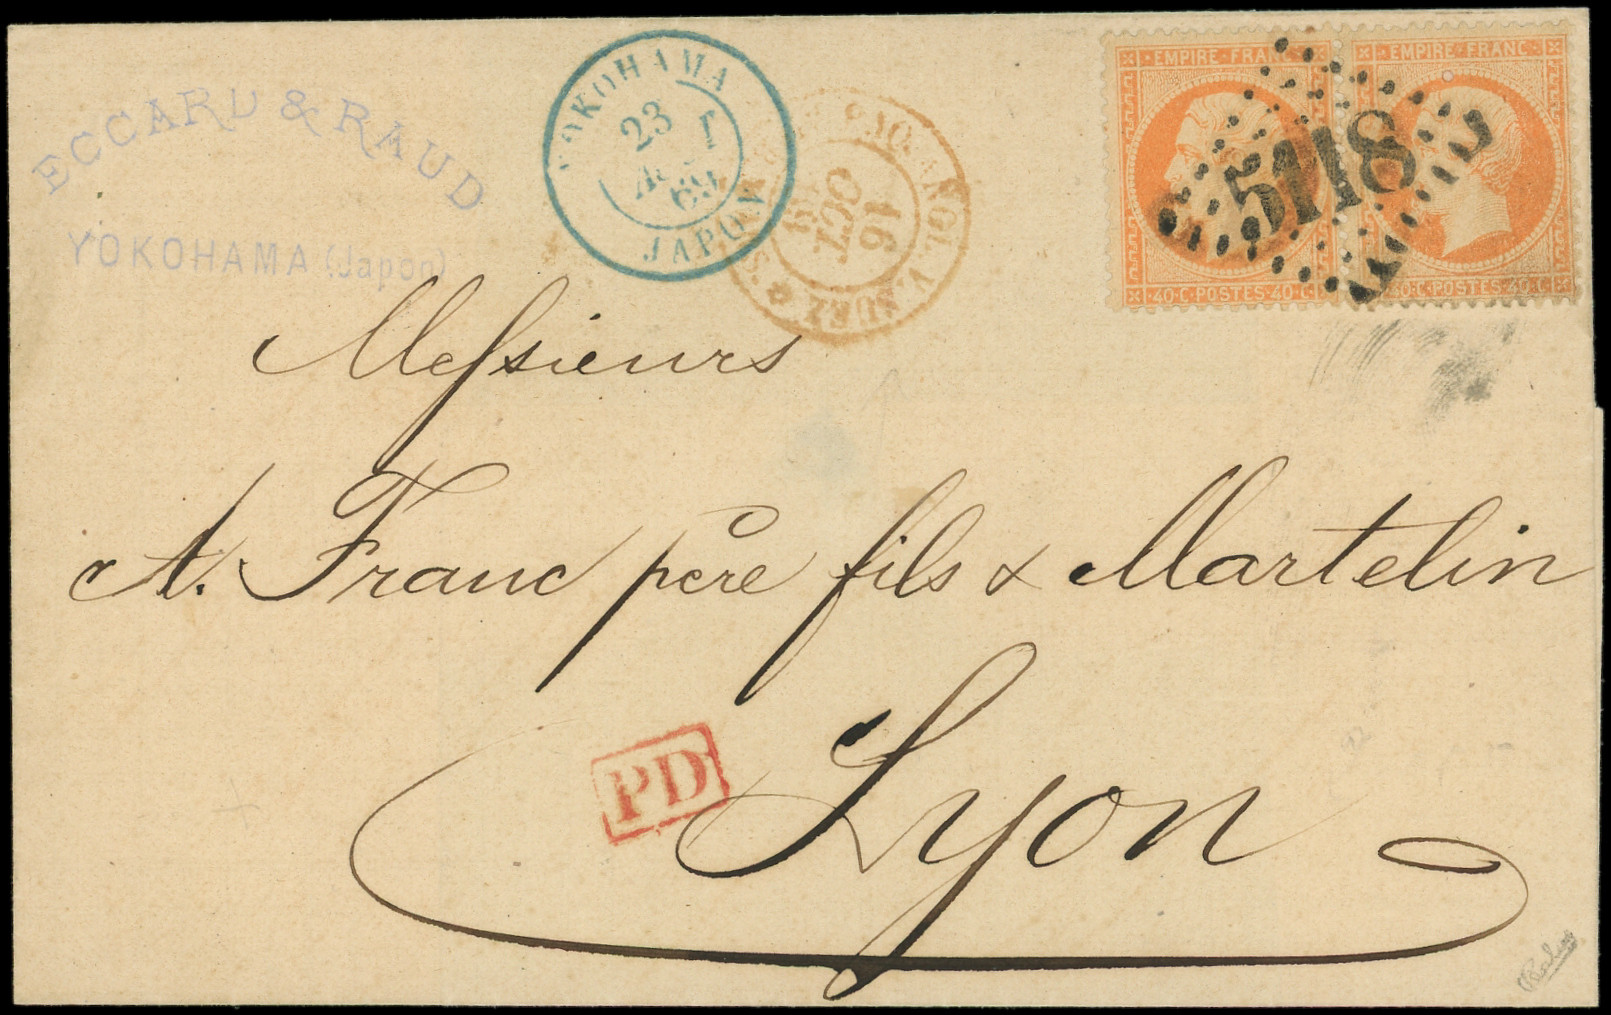 ECCARD & RAUD
YOKOHAMA (Japon)
YOKOHAMA
23
AOUT
69
JAPON
POSS. ANGL. V. SUEZ
16
OCT
69
EMPIRE FRANC
40·C·POSTES·40·C
EMPIRE FRANC
40·C·POSTES·40·C
5118
Messieurs
A. Franc père fils & Martelin
Lyon
PD